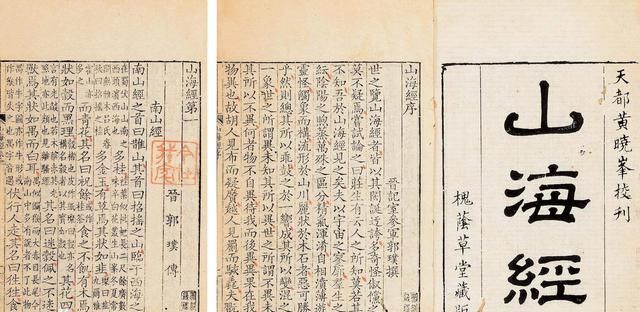 天都黃曉峯校刊
山海經
槐蔭草堂藏版
山海經序
晉記室參軍郭璞撰
世之覽山海經者皆以其閎誕迂誇多奇怪俶儻
莫不疑焉嘗試論之曰莊生有云人之所知莫若其
不知吾於山海經見之矣夫以宇宙之寥廓羣生之
紜陰陽之煦蒸萬殊之區分精氣渾淆自相濆薄遊
靈怪觸象而構流形於山川麗狀於木石者惡可勝
乎然則總其所以乖鼓之於一響成其所以變混之
一象世之所謂異未知其所以異世之所謂不異未
其所以不異何者物不自異待我而後異異果在我
物異也故胡人見布而疑黂越人見罽而駭毳夫
山海經第一
南山經
晉郭璞傳
南山經之首曰䧿山其首曰招搖之山臨于西海之
在蜀伏山山南之西頭濱西海也多桂
多金玉有草焉其狀如韭
而青花其名曰祝餘食之不飢有木焉
狀如榖而黑理其花四
其名曰迷榖佩之不
獸焉其狀如禺而白耳伏行人走其名曰狌狌食